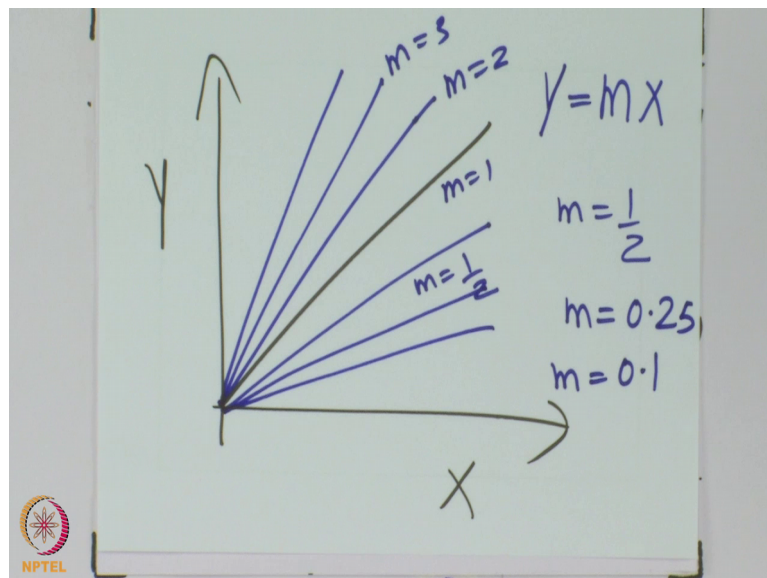 m=3
m=2
Y=mX
Y
m=1
m=1/2
m=1/2
m=0.25
m=0.1
X
NPTEL